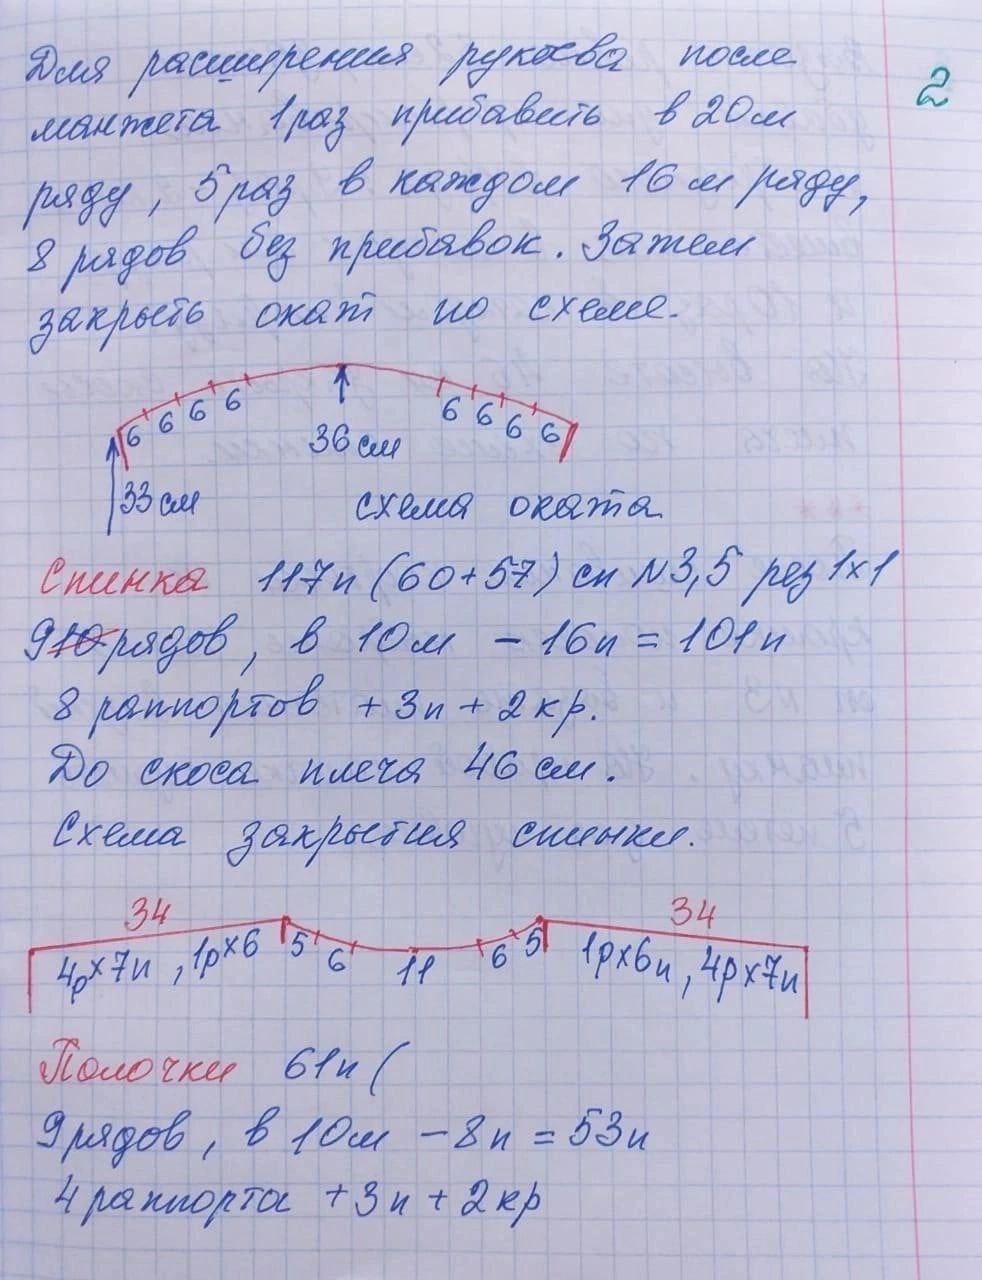 2
Для расширения рукава после
манжета 1 раз прибавить в 20м
ряду, 5 раз в каждом 16м ряду,
8 рядов без прибавок. Затем
закрыть окат по схеме.
6 6 6 6 6 6 6 6
36 см
33 см
схема оката
Спинка 117п (60+57) сп №3,5 рез 1х1
9 рядов, в 10м - 16п = 101п
8 раппортов + 3п + 2 кр.
До скоса плеча 46 см.
Схема закрытия спинки.
34 34
4р х 7п, 1р х 6 5 6 11 6 5 1р х 6п, 4р х 7п
Полочки 61п (
9 рядов, в 10м - 8п = 53п
4 раппорта + 3п + 2 кр